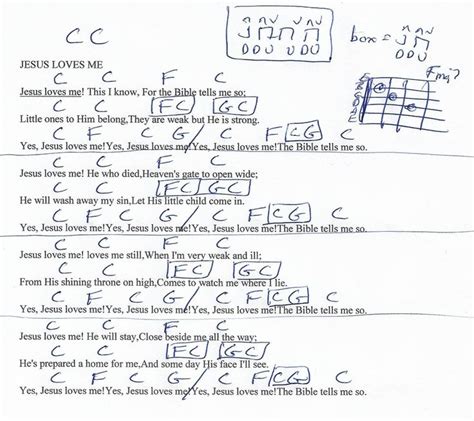 C C
D D U U D U
box = D D U
Fmaj7
JESUS LOVES ME
C C F C
Jesus loves me! This I know, For the Bible tells me so;
C C FC GC
Little ones to Him belong,They are weak but He is strong.
C F C G / C F CG C
Yes, Jesus loves me!Yes, Jesus loves me!Yes, Jesus loves me!The Bible tells me so.
C C F C
Jesus loves me! He who died,Heaven's gate to open wide;
C C FC GC
He will wash away my sin,Let His little child come in.
C F C G / C F CG C
Yes, Jesus loves me!Yes, Jesus loves me!Yes, Jesus loves me!The Bible tells me so.
C C F C
Jesus loves me! loves me still,When I'm very weak and ill;
C C FC GC
From His shining throne on high,Comes to watch me where I lie.
C F C G / C F CG C
Yes, Jesus loves me!Yes, Jesus loves me!Yes, Jesus loves me!The Bible tells me so.
C C F C
Jesus loves me! He will stay,Close beside me all the way;
C C FC GC
He's prepared a home for me,And some day His face I'll see.
C F C G / C F CG C
Yes, Jesus loves me!Yes, Jesus loves me!Yes, Jesus loves me!The Bible tells me so.